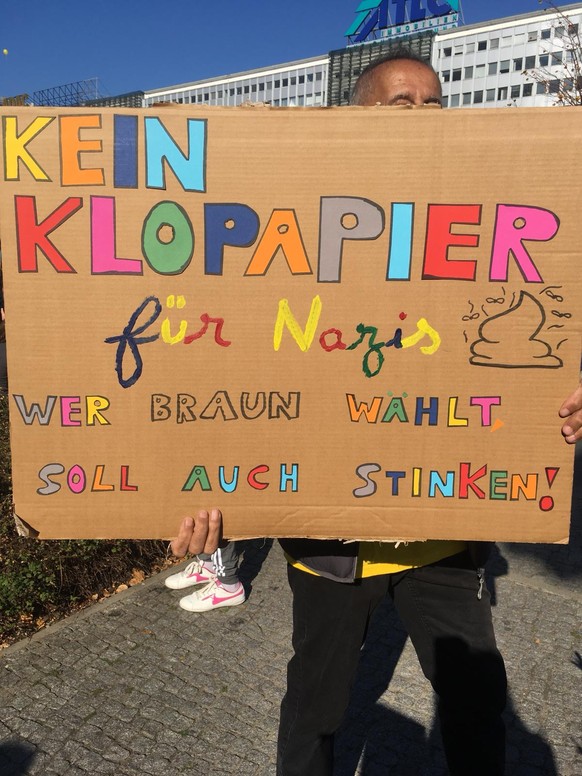 ATLC
IMMOBILIEN
KEIN
KLOPAPIER
für Nazis
WER BRAUN WÄHLT,
SOLL AUCH STINKEN!